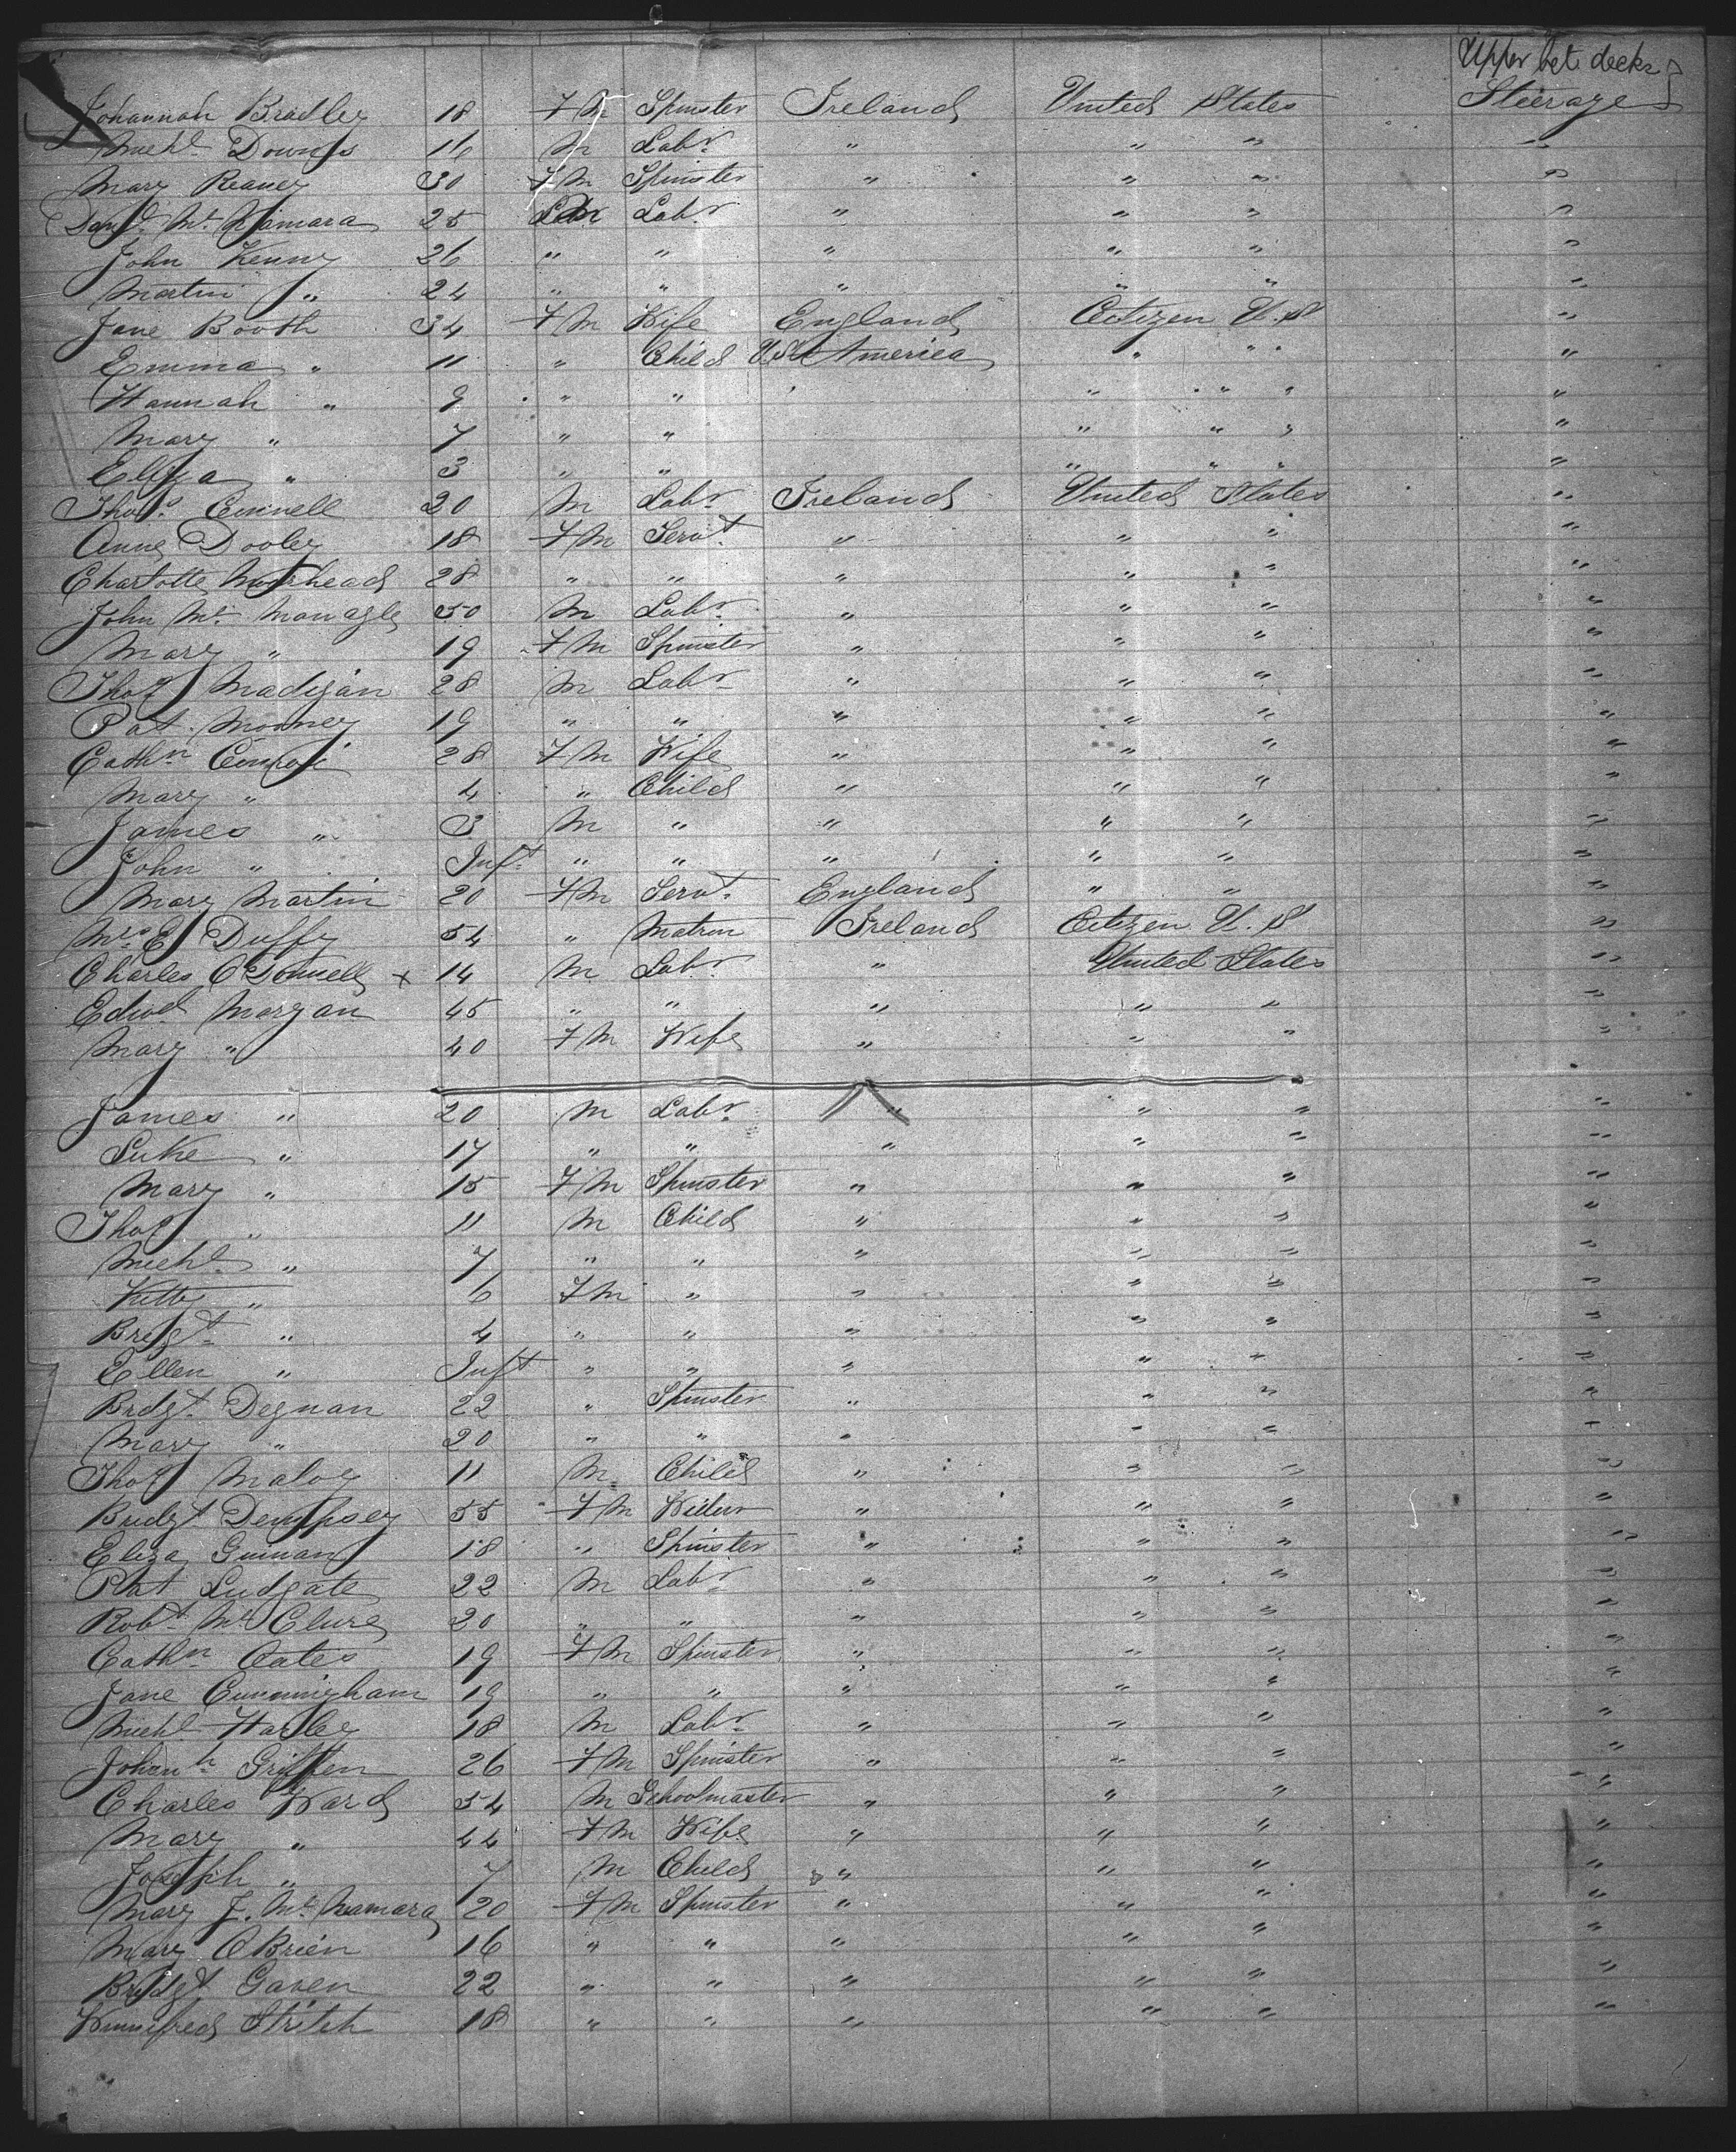 Upper bet. decks
Johannah Bradley 18 Fm Spinster Ireland United States Steerage
Michl. Downs 16 m Labr. " " " "
Mary Reaney 30 Fm Spinster " " " "
Danl. Mc. Namara 25 m Labr " " " "
John Kenny 26 " " " " " "
Martin " 24 " " " " " "
Jane Booth 34 Fm Wife England Citizen U.S "
Emma " 11 " Child U.S. America " " " "
Hannah " 9 " " " " " "
Mary " 7 " " " " " "
Eliza " 3 " " " " " "
Thos. Connell 20 m Labr. Ireland United States "
Anne Dooley 18 Fm Servt. " " " "
Charlotte Moorhead 28 " " " " " "
John Mc. Monagle 50 m Labr. " " " "
Mary " 19 Fm Spinster " " " "
Thos Madigan 28 m Labr " " " "
Pat. Mooney 19 " " " " " "
Cathn. 28 Fm Wife " " " "
Mary " 4 " Child " " " "
James " 3 m " " " " "
John " Inft. " " " " " "
Mary Martin 20 Fm Servt. England " " "
Mrs E Duffy 54 " Matron Ireland Citizen U.S "
Charles O'Donnell x 14 m Labr. " United States "
Edwd. Morgan 45 " " " " " "
Mary " 40 Fm Wife " " " "
James " 20 m Labr. " " " "
Luke " 17 " " " " " "
Mary " 15 Fm Spinster " " " "
Thos " 11 m Child " " " "
Michl. " 7 " " " " " "
Kitty " 6 Fm " " " " "
Bridgt. " 4 " " " " " "
Ellen " Inft " " " " " "
Brdgt. Degnan 22 " Spinster " " " "
Mary " 20 " " " " " "
Thos Maloy 11 m. Child " " " "
Bridgt. Dempsey 55 Fm Widow " " " "
Eliza Guinan 18 " Spinster " " " "
Pat Ludgate 22 m Labr. " " " "
Robt. Mc Clure 20 " " " " " "
Cathn. Oates 19 Fm Spinster " " " "
Jane Cunningham 19 " " " " " "
Michl. Harley 18 m Labr. " " " "
Johanh. Griffen 26 Fm Spinster " " " "
Charles Ward 54 m Schoolmaster " " " "
Mary " 44 Fm Wife " " " "
Joseph " 7 m Child " " " "
Mary J. Mc. Namara 20 Fm Spinster " " " "
Mary OBrien 16 " " " " " "
Bridgt Gaven 22 " " " " " "
Winnifred Stritch 18 " " " " " "